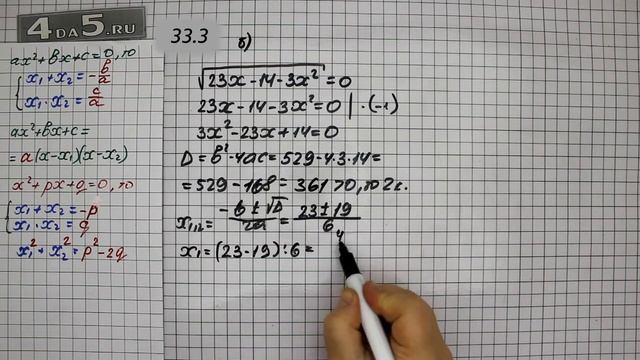 4DA5.RU
ax²+bx+c=0, то
x₁+x₂=-b/a
x₁·x₂=c/a
ax²+bx+c=
=a(x-x₁)(x-x₂)
x²+px+q=0, то
x₁+x₂=-p
x₁·x₂=q
x₁²+x₂²=p²-2q
33.3
б)
√(23x-14-3x²)=0
23x-14-3x²=0 |·(-1)
3x²-23x+14=0
D=b²-4ac=529-4·3·14=
=529-168=361>0, то 2к.
x₁,₂=(-b±√D)/2a=(23±19)/6
x₁=(23-19):6= 4